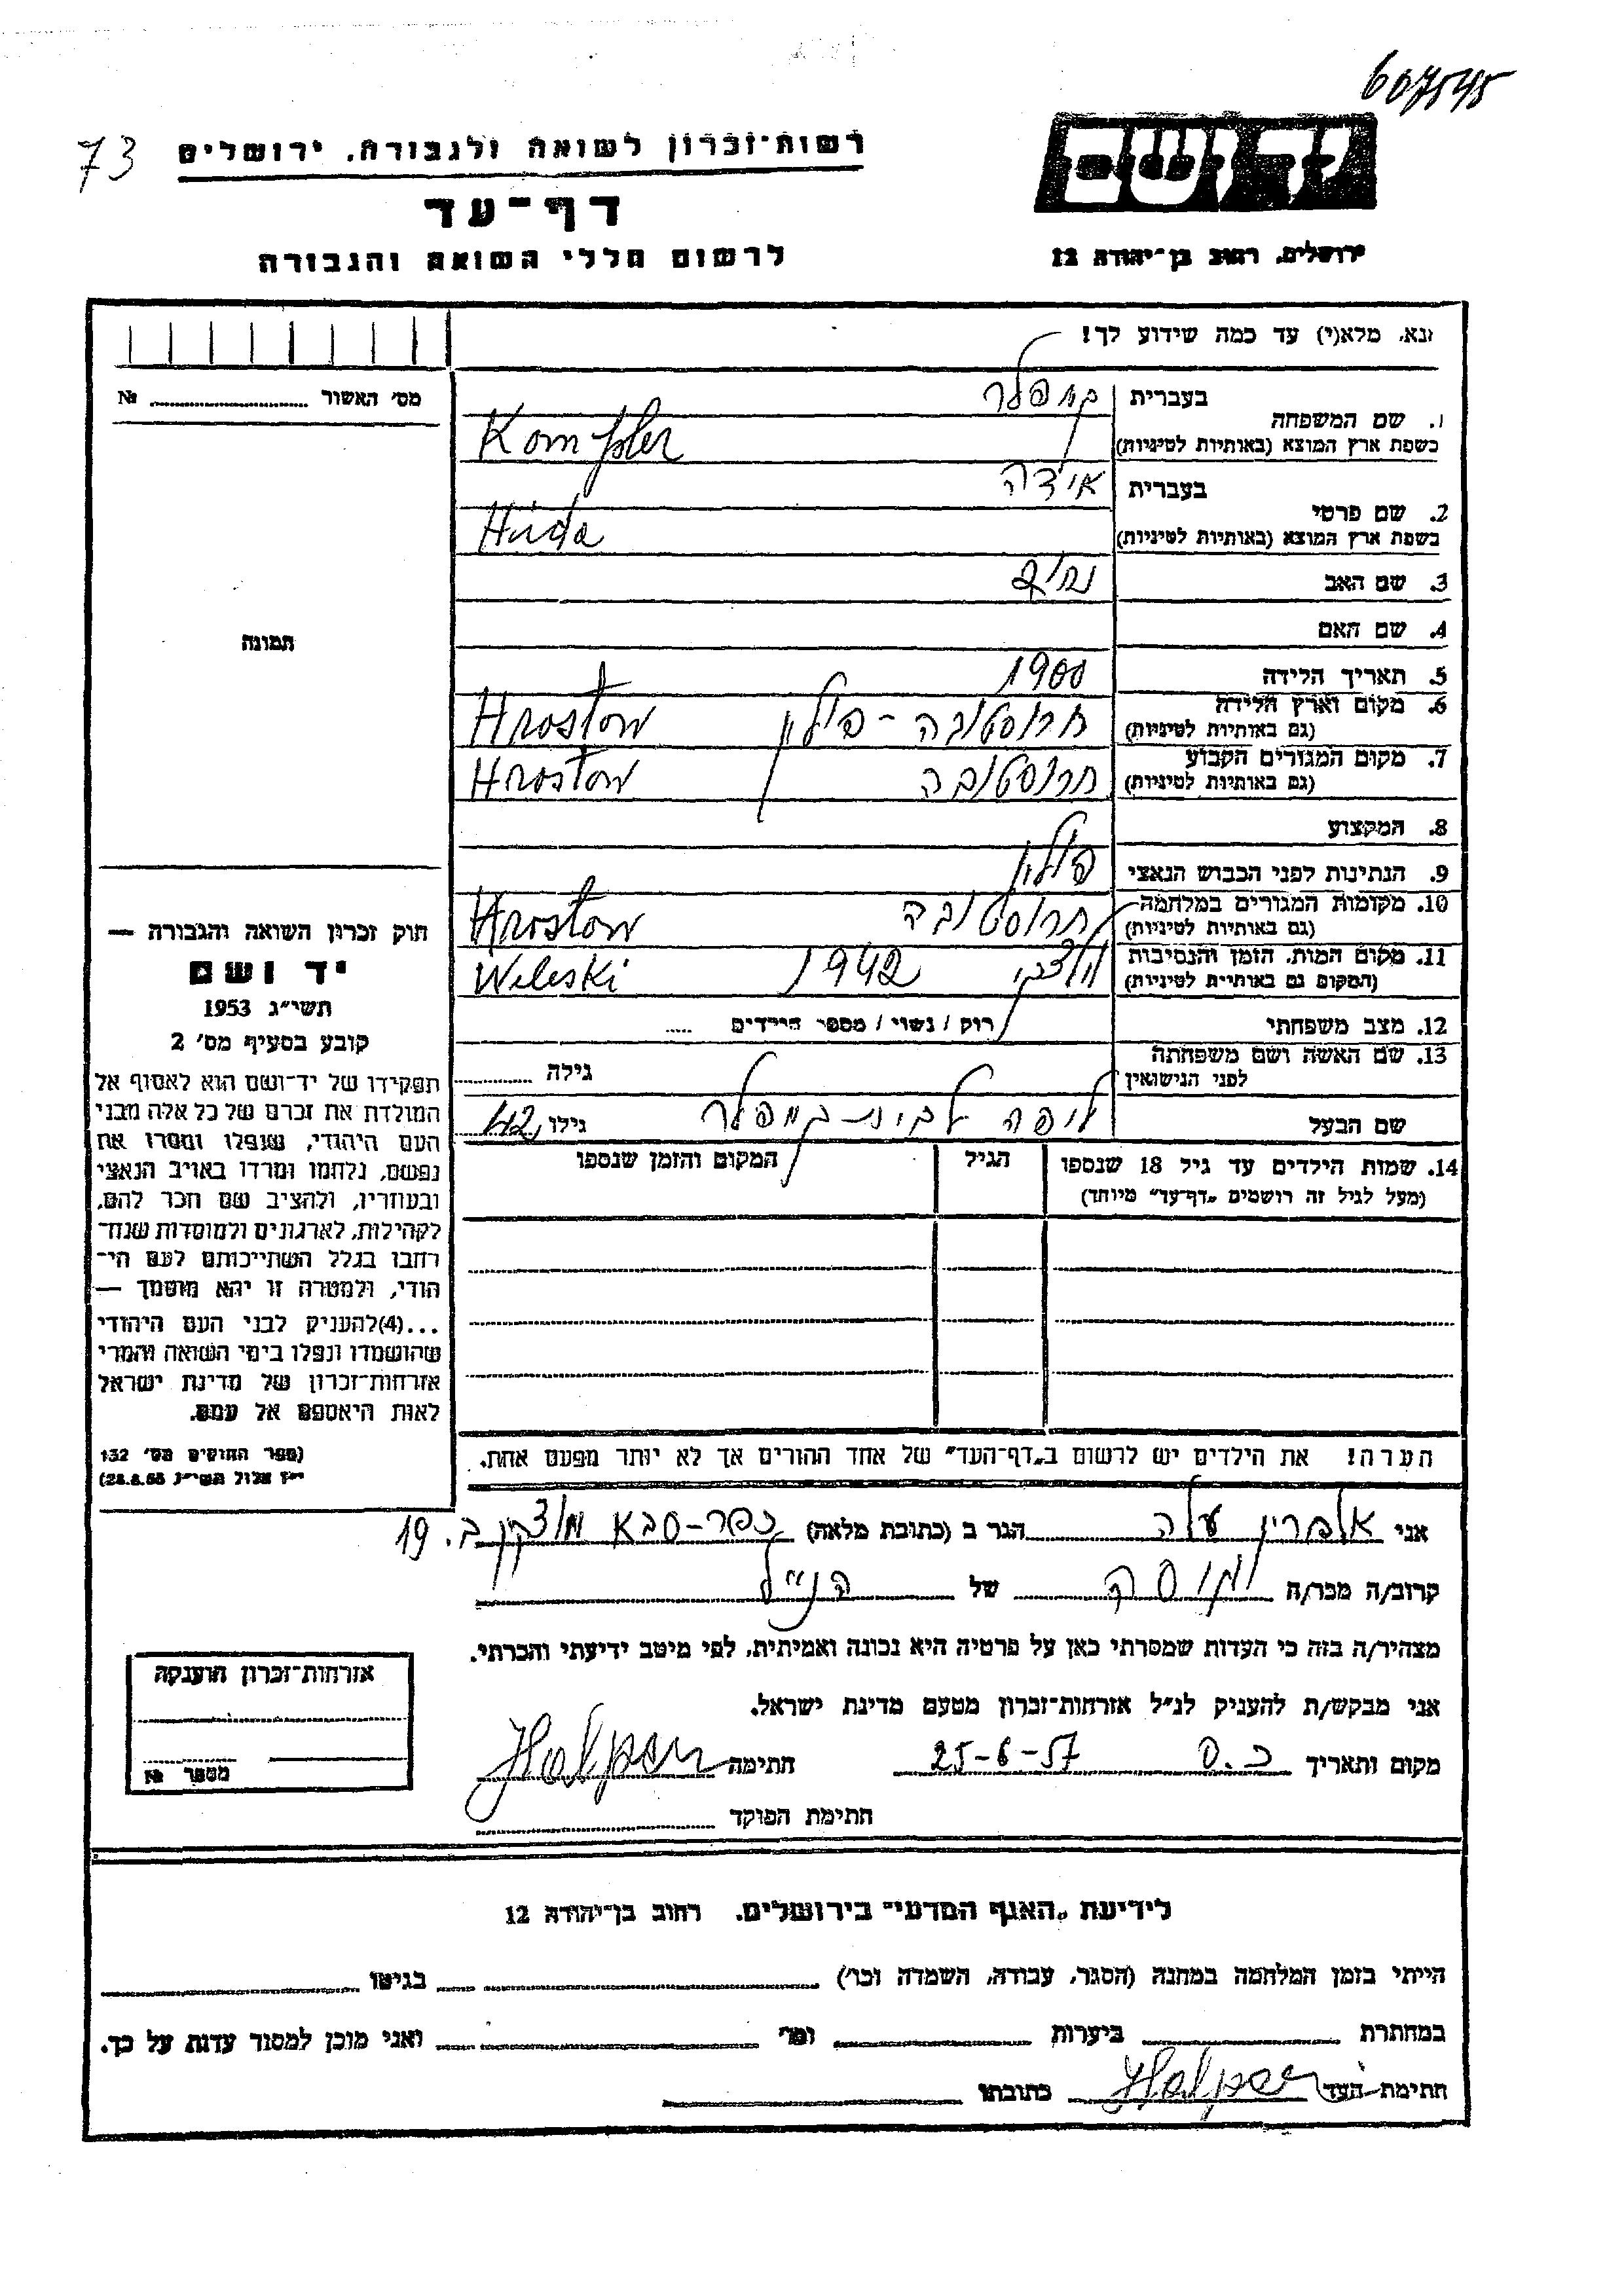 607545
73
רשות-זכרון לשואה ולגבורה, ירושלים
יד ושם
דף-עד
לרשום חללי השואה והגבורה
ירושלים, רחוב בן-יהודה 12
נא, מלא(י) עד כמה שידוע לך!
מס' האשור № 
1. שם המשפחה
בעברית קמפלר
בשפת ארץ המוצא (באותיות לטיניות) Kompler
2. שם פרטי
בעברית אידה
בשפת ארץ המוצא (באותיות לטיניות) Hida
3. שם האב
4. שם האם
תמונה
5. תאריך הלידה 1900
6. מקום וארץ הלידה (גם באותיות לטיניות) חרוסטובה - פולין Hrostow
7. מקום המגורים הקבוע (גם באותיות לטיניות) חרוסטובה Hrostow
8. המקצוע
9. הנתינות לפני הכבוש הנאצי פולין
10. מקומות המגורים במלחמה (גם באותיות לטיניות) חרוסטובה Hrostow
11. מקום המות, הזמן והנסיבות (המקום גם באותיות לטיניות) 1942 Weleski
12. מצב משפחתי רוק / נשוי / מספר הילדים
13. שם האשה ושם משפחתה לפני הנישואין גילה
שם הבעל ליפה קמפלר גילו 42
14. שמות הילדים עד גיל 18 שנספו
(מעל לגיל זה רושמים "דף-עד" מיוחד)
הגיל
המקום והזמן שנספו
הערה! את הילדים יש לרשום ב"דף-העד" של אחד ההורים אך לא יותר מפעם אחת.
חוק זכרון השואה והגבורה —
יד ושם
תשי"ג 1953
קובע בסעיף מס' 2
תפקידו של יד-ושם הוא לאסוף אל
המולדת את זכרם של כל אלה מבני
העם היהודי, שנפלו ומסרו את
נפשם, נלחמו ומרדו באויב הנאצי
ובעוזריו, ולהציב שם וזכר להם,
לקהילות, לארגונים ולמוסדות שנח-
רבו בגלל השתייכותם לעם הי-
הודי, ולמטרה זו יהא מוסמך —
...(4)להעניק לבני העם היהודי
שהושמדו ונפלו בימי השואה והמרי
אזרחות-זכרון של מדינת ישראל
לאות היאספם אל עמם.
(ספר החוקים מס' 132
י"ז אלול תשי"ג 28.8.53)
אני הלפרין עלה הגר ב (כתובת מלאה) כפר-סבא מוצקין ב. 19
קרוב/ה מכר/ה של הנ"ל
מצהיר/ה בזה כי העדות שמסרתי כאן על פרטיה היא נכונה ואמיתית, לפי מיטב ידיעתי והכרתי.
אני מבקש/ת להעניק לנ"ל אזרחות-זכרון מטעם מדינת ישראל.
מקום ותאריך כ.ס 25-6-57 חתימה Halpern
חתימת הפוקד
אזרחות-זכרון הוענקה
מספר №
לידיעת "האגף המדעי" בירושלים. רחוב בן-יהודה 12
הייתי בזמן המלחמה במחנה (הסגר, עבודה, השמדה וכו') בגיטו
במחתרת ביערות וכו' ואני מוכן למסור עדות על כך.
חתימת העד Halpern כתובתו